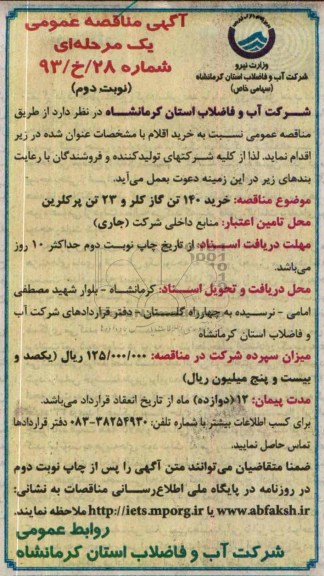 آگهی مناقصه عمومی
یک مرحله‌ای
شماره ۲۸/خ/۹۳
(نوبت دوم)
وزارت نیرو
شرکت آب و فاضلاب استان کرمانشاه
(سهامی خاص)
شرکت آب و فاضلاب استان کرمانشاه در نظر دارد از طریق
مناقصه عمومی نسبت به خرید اقلام با مشخصات عنوان شده در زیر
اقدام نماید. لذا از کلیه شرکتهای تولیدکننده و فروشندگان با رعایت
بندهای زیر در این زمینه دعوت بعمل می‌آید.
موضوع مناقصه: خرید ۱۴۰ تن گاز کلر و ۲۳ تن پرکلرین
محل تامین اعتبار: منابع داخلی شرکت (جاری)
مهلت دریافت اسناد: از تاریخ چاپ نوبت دوم حداکثر ۱۰ روز
می‌باشد.
محل دریافت و تحویل اسناد: کرمانشاه - بلوار شهید مصطفی
امامی - نرسیده به چهارراه گلستان - دفتر قراردادهای شرکت آب
و فاضلاب استان کرمانشاه
میزان سپرده شرکت در مناقصه: ۱۲۵/۰۰۰/۰۰۰ ریال (یکصد و
بیست و پنج میلیون ریال)
مدت پیمان: ۱۲(دوازده) ماه از تاریخ انعقاد قرارداد می‌باشد.
برای کسب اطلاعات بیشتر با شماره تلفن: ۳۸۲۵۴۹۳۰-۰۸۳ دفتر قراردادها
تماس حاصل نمایید.
ضمنا متقاضیان می‌توانند متن آگهی را پس از چاپ نوبت دوم
در روزنامه در پایگاه ملی اطلاع‌رسانی مناقصات به نشانی:
www.abfaksh.ir یا http://iets.mporg.ir ملاحظه نمایند.
روابط عمومی
شرکت آب و فاضلاب استان کرمانشاه